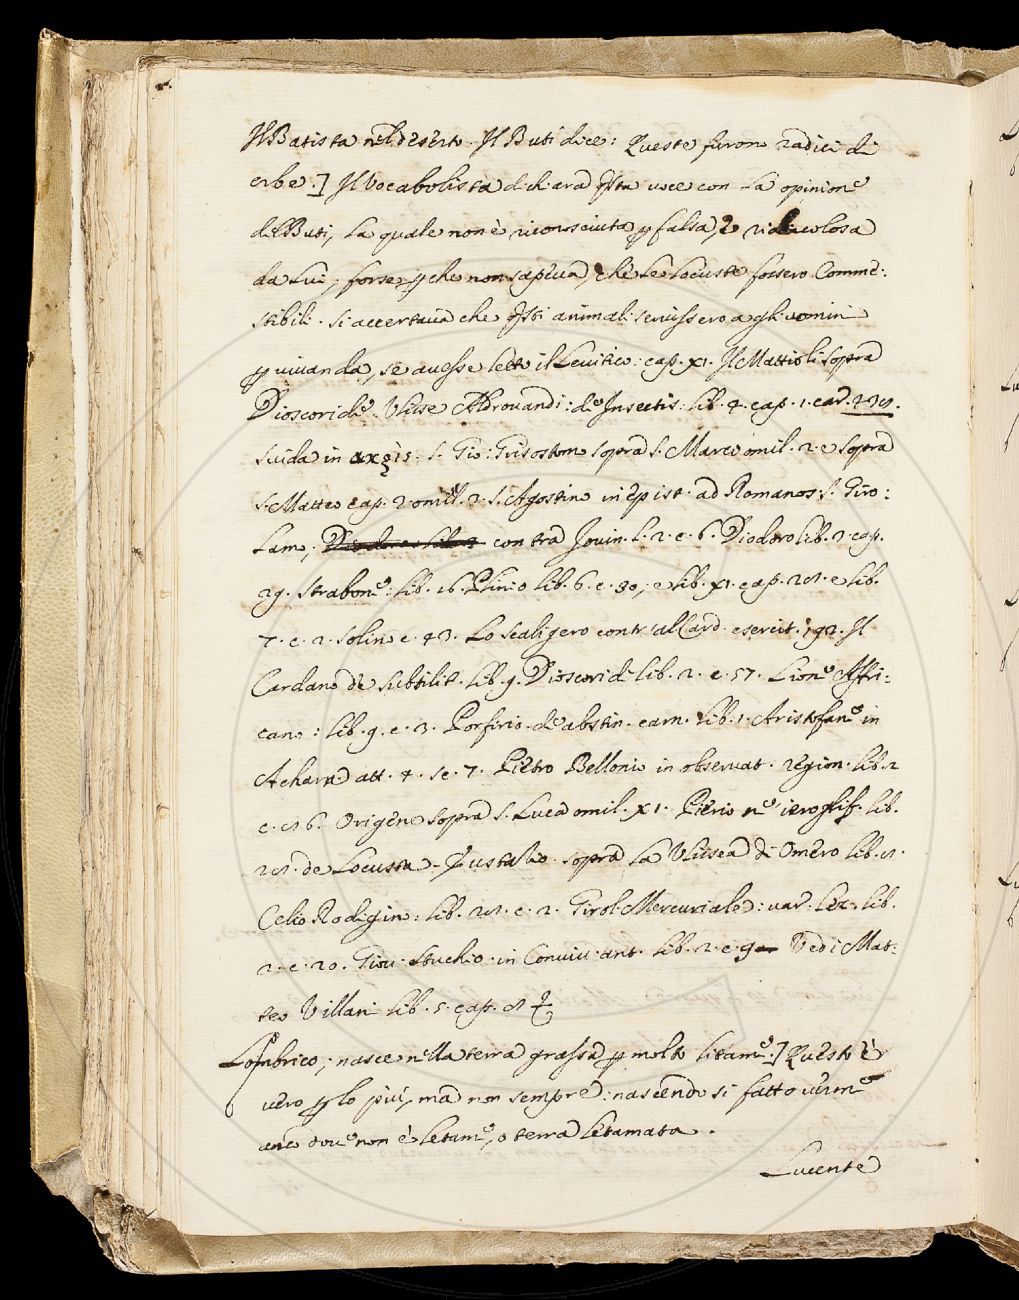 Il Batista nel deserto. Il Buti dice: Queste furon radici di
erbe.] Il Vocabolista dichiara qsta voce con la opinione
del Buti, la quale non è riconosciuta p falsa, e ridicolosa
da lui; forse pche non sapeva, che le Locuste fossero Comme:
stibili. Si accertava che qsti animali servissero agli uomini
p vivanda, se avesse letto il Levitico: cap. XI. Il Mattioli sopra
Dioscoride. Ulisse Aldrovandi: de Insectis: lib. 4. cap. 1. car.
Suida in S. Gio: Grisostomo sopra S. Marco omil. 2. e sopra
S. Matteo cap. 2. omil. 2. S. Agostino in Epist. ad Romanos: S. Giro:
lamo, contra Jovin. l. 2. c. 6. Diodoro lib. 3. cap.
29. Strabone: lib. 16. Plinio lib. 6. c. 30, e lib. XI. cap. e lib.
7. c. 2. Solino c. 43. Lo Scaligero contr'al Card. esercit. 192. Il
Cardano de Subtilit. lib. 9. Dioscoride lib. 2. c. 57. Lione Affri:
cano: lib. 9. c. 3. Porfirio de abstin. carn. lib. 1. Aristofane in
Acharn. att. 4. sc. 7. Pietro Bellonio in observat. region. lib. 2
c. Origene sopra S. Luca omil. XI. Pierio ne ieroglif. lib.
de Locusta. Eustatio sopra la Ulissea di Omero lib.
Celio Rodigino: lib. c. 2. Girol. Mercuriale: var. lez. lib.
2. c. 20. Giov. Stuchio in Conviv. ant. lib. 2. c. 9 Vedi Mat:
teo Villani lib. 5. cap.
Lombrico; nasce nella terra grassa p molto litame.] Questo è
vero p lo più, ma non sempre: nascendo si fatto verme
anc dove non è letame, o terra letamata.
Lucente